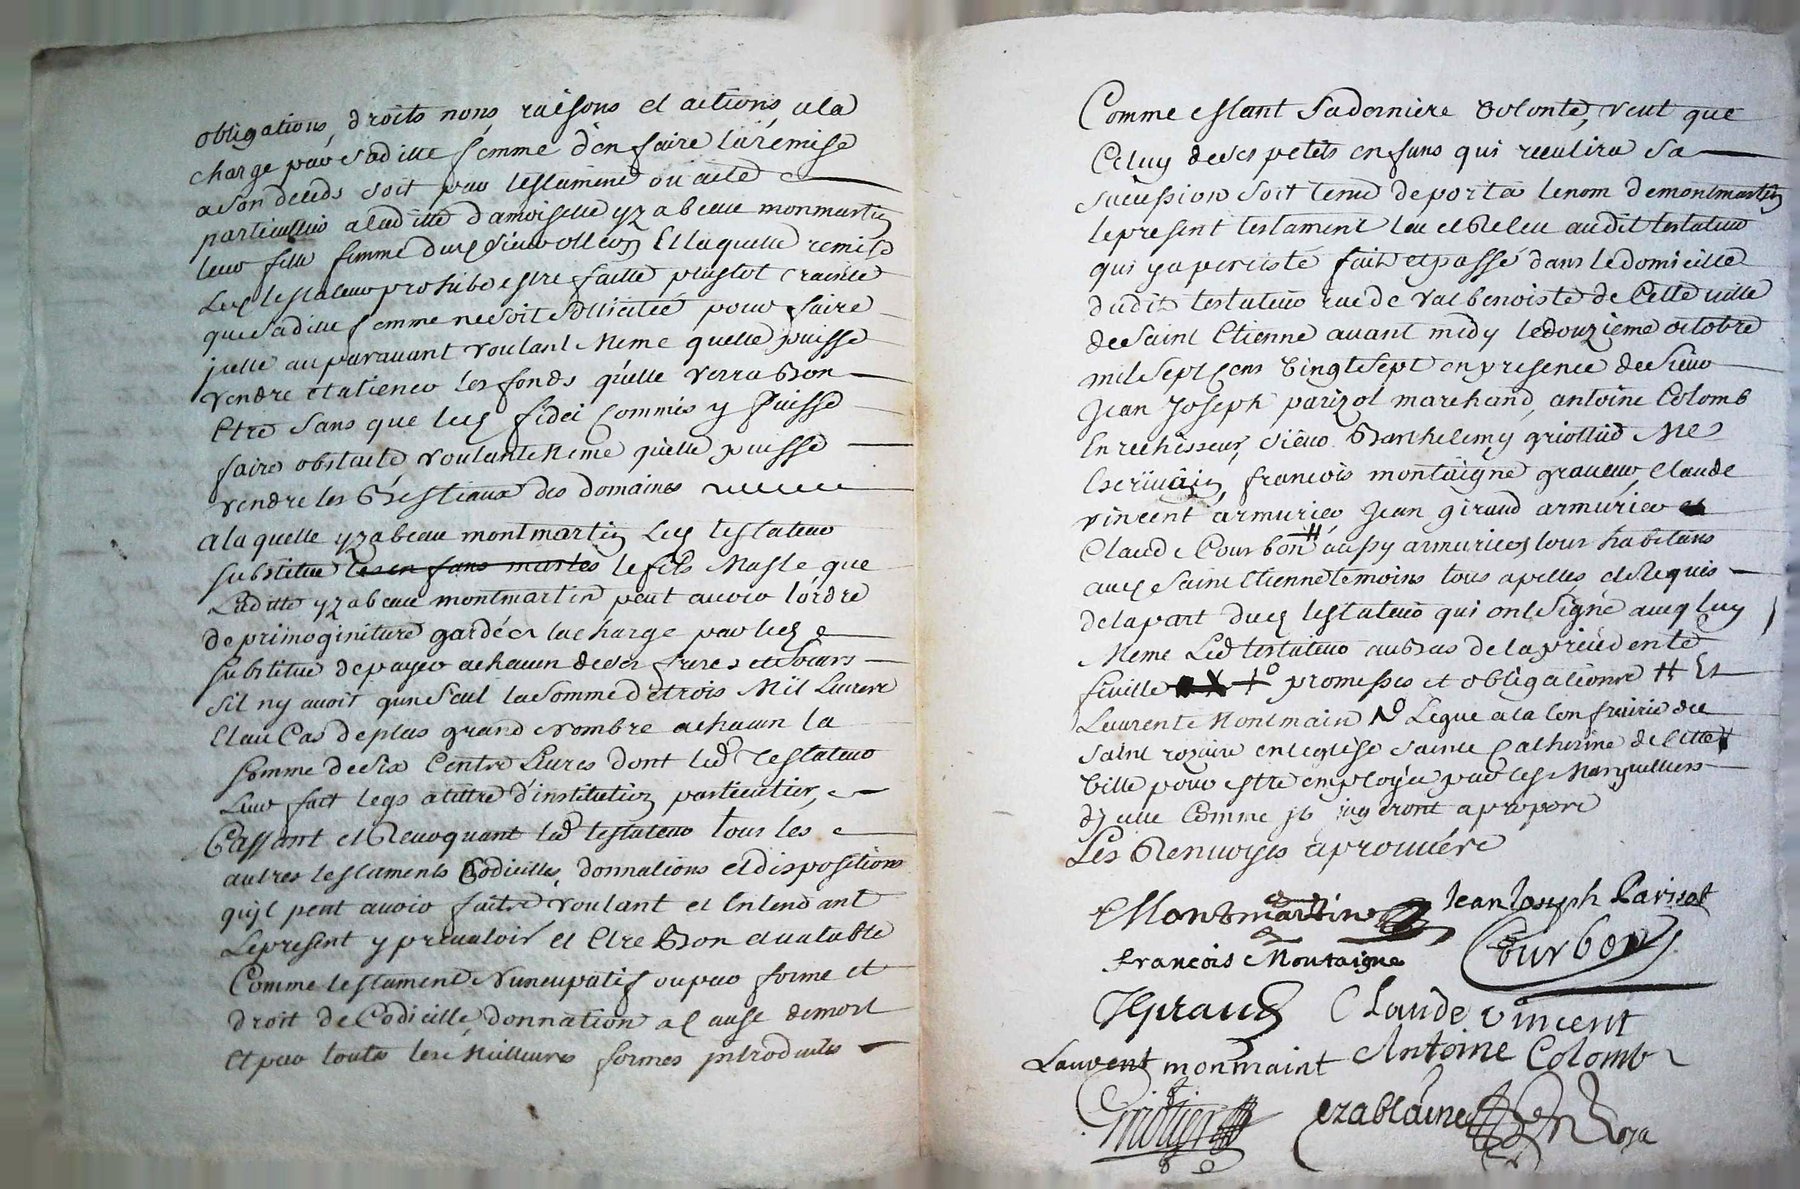 obligations, droits noms, raisons et actions, a la
charge par sa ditte femme d'en faire la remise
a son deceds soit par testament ou acte
particullier a laditte damoiselle yzabeau monmartin
leur fille femme dud sieur Et laquelle remise
Led testateur prohibe estre faitte plustot crainte
que saditte femme ne soit sollicitée pour faire
jcelle auparavant voulant Meme quelle puisse
vendre et aliener les fonds qu'elle verra Bon
Etre sans que led fidei Commis y Puisse
faire obstacle voulant Meme quelle puisse
vendre les Bestiaux des domaines
a laquelle yzabeau montmartin Led testateur
substitue les enfans masles le fils Masle que
Laditte yzabeau montmartin peut avoir l'ordre
de primoginiture gardé a la charge par led
substitue de payer a chacun de ses freres et soeurs
sil ny avoit qun Seul la somme de trois Mil Livres
Et au Cas de plus grand nombre a chacun la
somme de six Cents Livres dont led Testateur
Leur fait legs a tittre d'institution particulier,
Cassant et Revoquant led testateur tous les
autres testaments Codicilles, donnations et dispositions
qu'jl peut avoir faitte voulant et Entendant
Le present y prevaloir et Etre Bon et valable
Comme testament Nuncupatif ou par forme et
droit de Codicille, donnation a Cause de mort
et par toutes les Meilleures formes jntroduites
Comme estant sa derniere volonté, veut que
Celuy de ses petits enfans qui receulira sa
sucession soit tenu de porter le nom de montmartin
le present testament leu et Releu audit testateur
qui y a percisté fait et passé dans le domicille
dudit testateur rue de valbenoiste de Cette ville
de Saint Etienne avant midy le douzieme octobre
mil Sept Cens Vingt Sept en presence de Sieur
Jean Joseph parizot marchand, antoine Colomb
Enrechisseur, sieur Barthelemy Me
Escrivain, françois montaigne graveur, Claude
vincent armurier Jean giraud armurier et
Claude Courbon # aussy armuriers tous habitans
aud Saint Etienne temoins tous apelles et Requis
de la part dud testateur qui ont Signé avec luy
Meme Led testateur au Bas de la precedente
feuille promesses et obligations # Et
Laurent Montmain Legue a la Confrairie du
saint rozaire en leglise sainte Catherine de Cette
Ville pour estre employée par les Marguilliers
d'jcelle Comme jls jugeront a propore
Les Renvoyes aprouvére
Montmartin Jean Joseph Parisot
francois Montaigne Courbon
JGiraud Claude vincent
Laurent monmaint Antoine Colomb